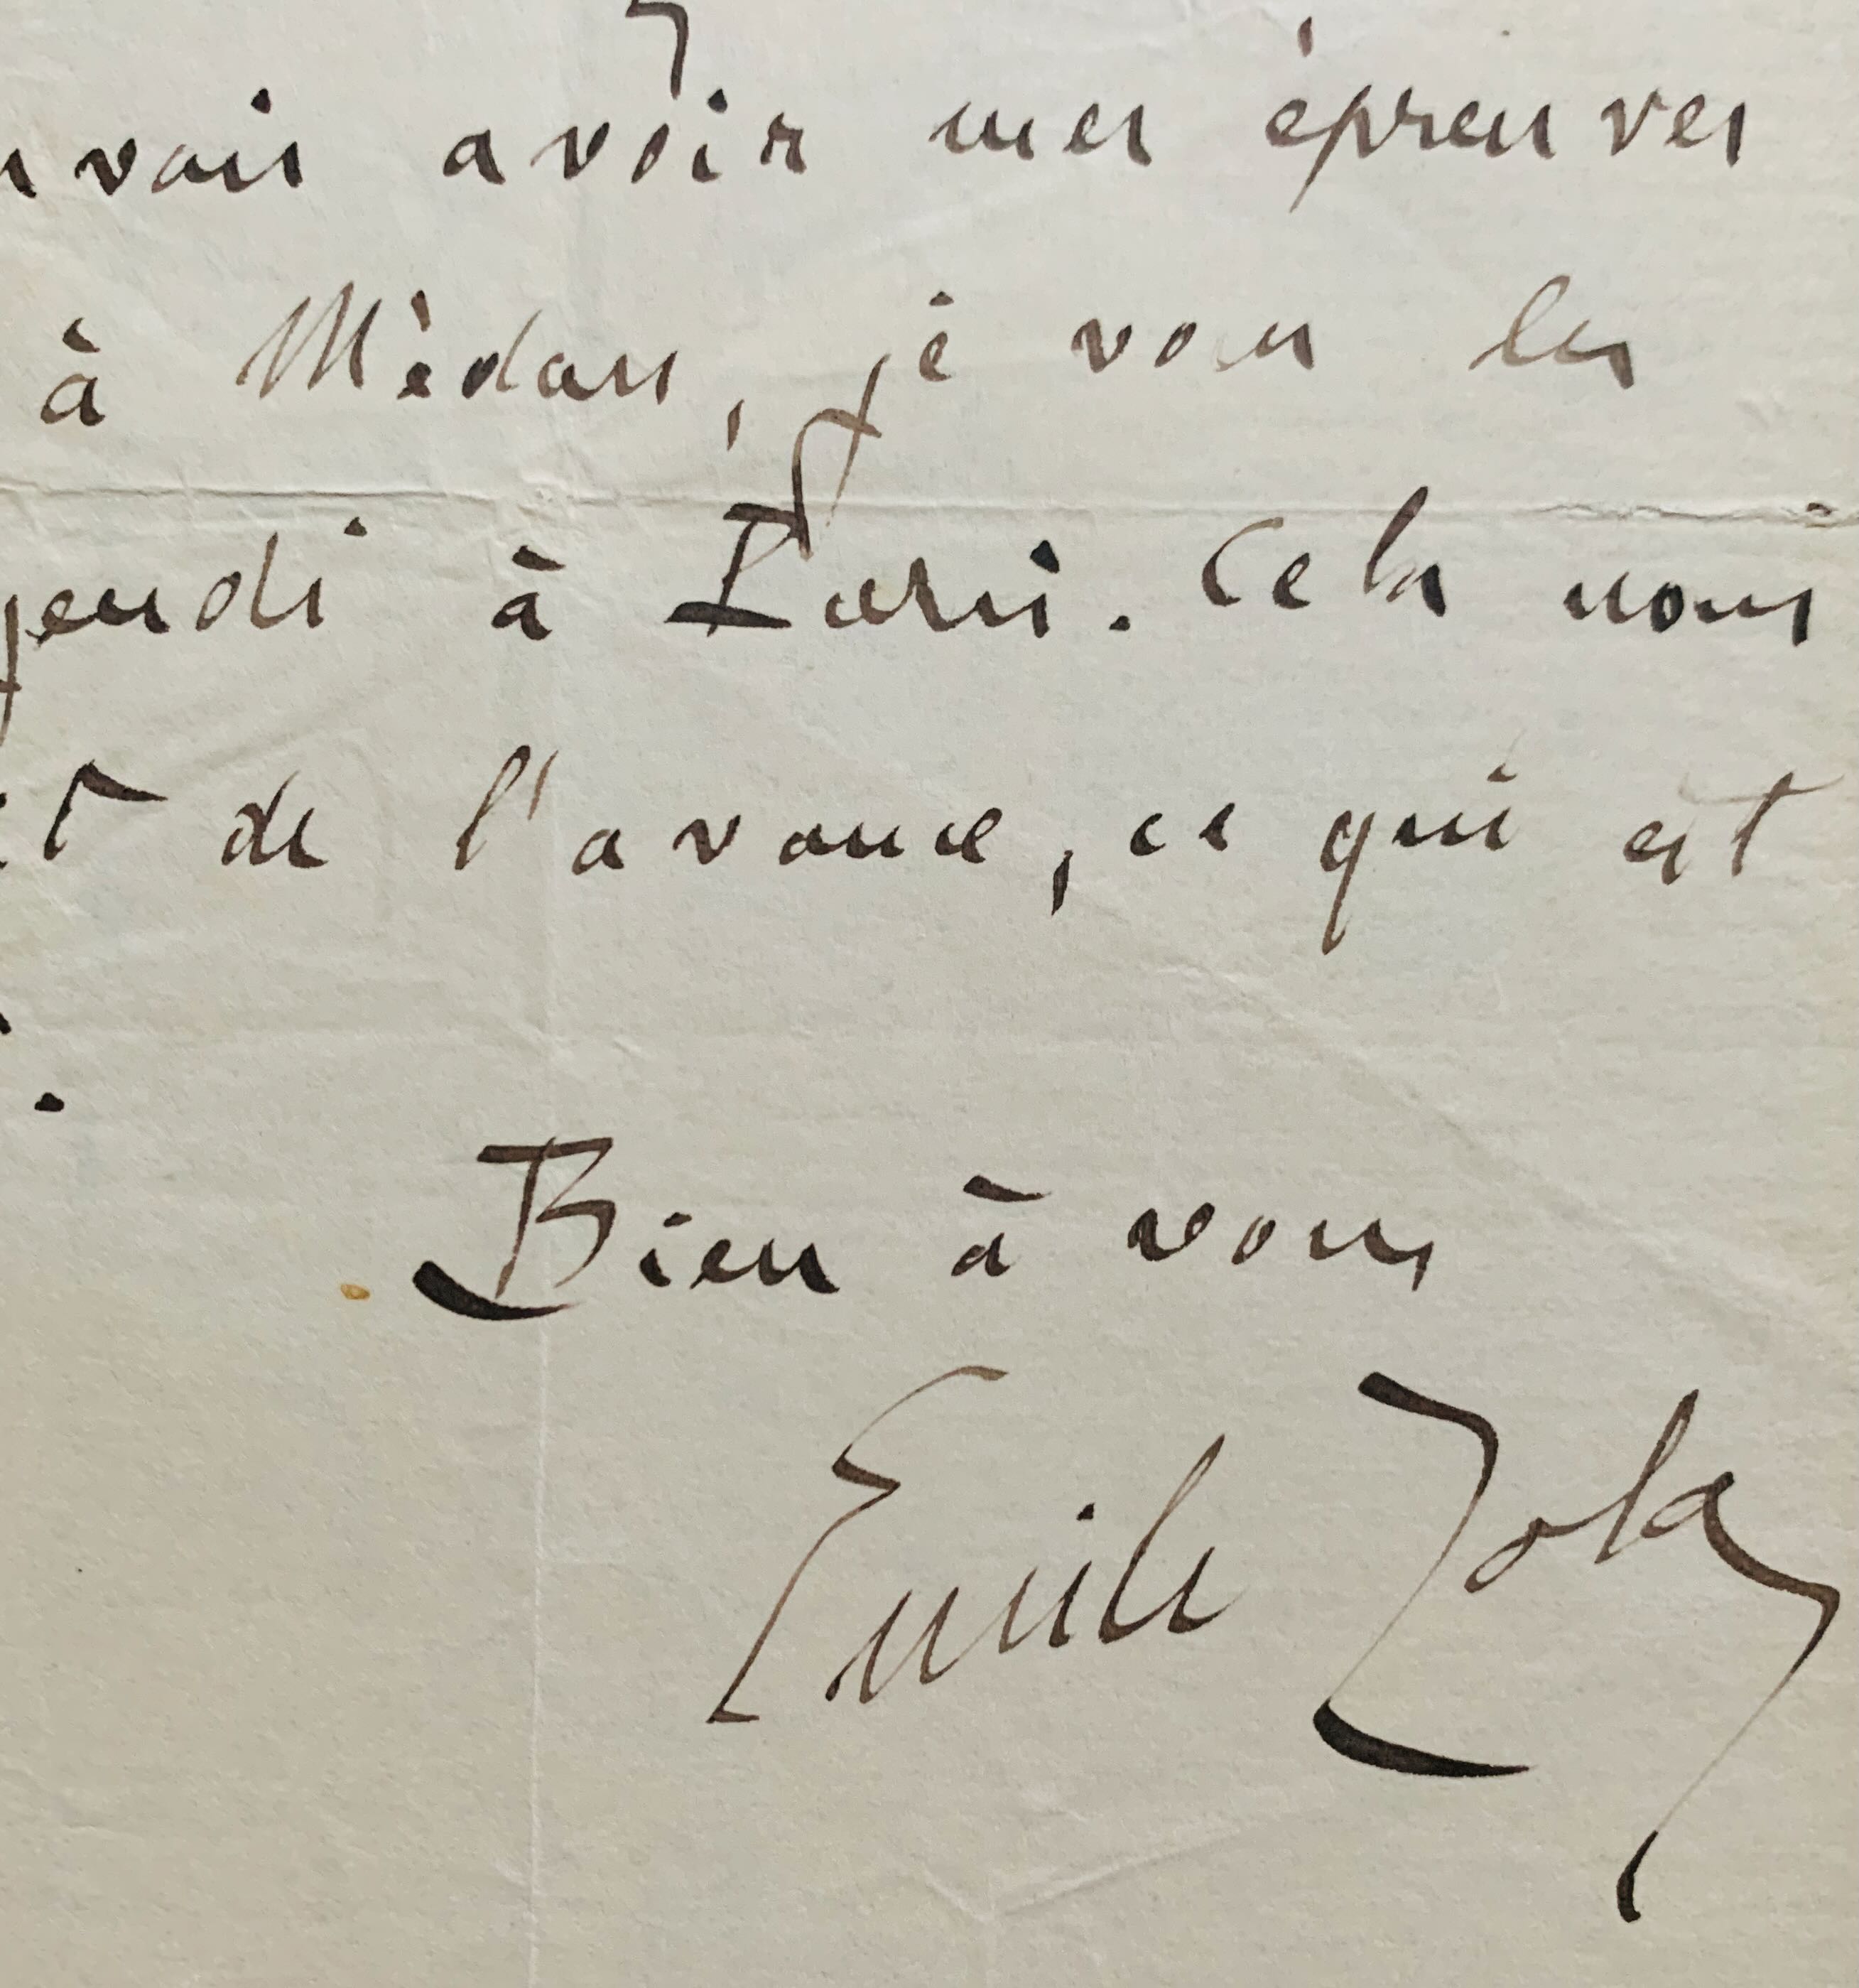 avoir mes épreuves
à Médan, je vous les
jeudi à Paris. Cela nous
de l'avance, ce qui est
Bien à vous
Emile Zola